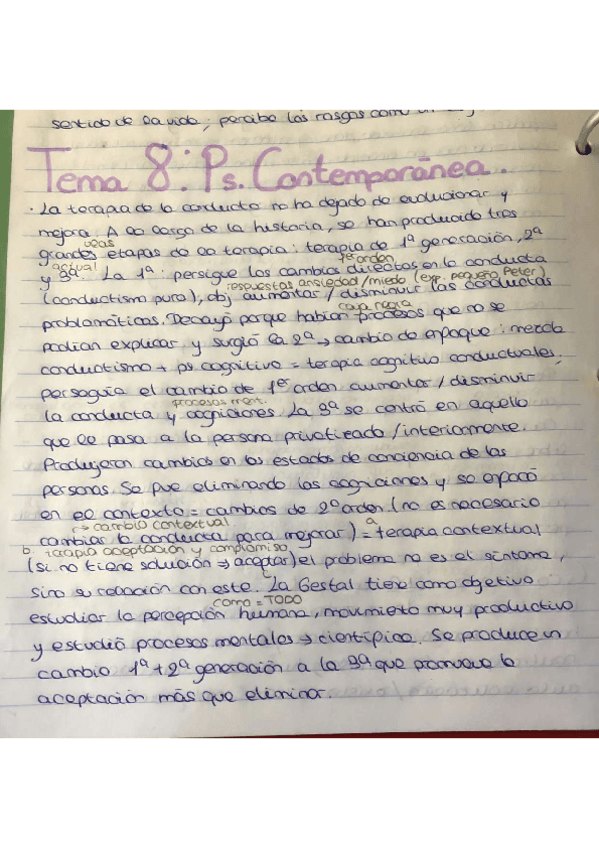 sentido de la vida; percibe los rasgos como un
Tema 8: Ps. Contemporánea.
· La terapia de la conducta no ha dejado de evolucionar y
mejora. A lo largo de la historia, se han producido tres
olas
grandes etapas de la terapia: terapia de 1ª generación, 2ª
actual
1er orden
y 3ª. La 1ª: persigue los cambios directos en la conducta
respuestas ansiedad/miedo (exp. pequeño Peter)
(conductismo puro), obj aumentar / disminuir las conductas
caja negra
problemáticas. Decayó porque habían procesos que no se
podían explicar y surgió la 2ª → cambio de enfoque: mezcla
conductismo + ps. cognitivo = terapia cognitivo conductuales,
perseguía el cambio de 1er orden aumentar / disminuir
procesos ment.
la conducta y cogniciones. La 3ª se centró en aquello
que le pasa a la persona privatizado / interiormente.
Produjeron cambios en los estados de conciencia de las
personas. Se fue eliminando las cogniciones y se enfocó
en el contexto = cambios de 2º orden (no es necesario
↳ cambio contextual
cambiar la conducta para mejorar) = terapia contextual
a
b. terapia aceptación y compromiso
(si no tiene solución → aceptar) el problema no es el síntoma,
sino su relación con este. La Gestal tiene como objetivo
como = TODO
estudiar la percepción humana, movimiento muy productivo
y estudió procesos mentales → científica. Se produce un
cambio 1ª + 2ª generación a la 3ª que promueve la
aceptación más que eliminar.